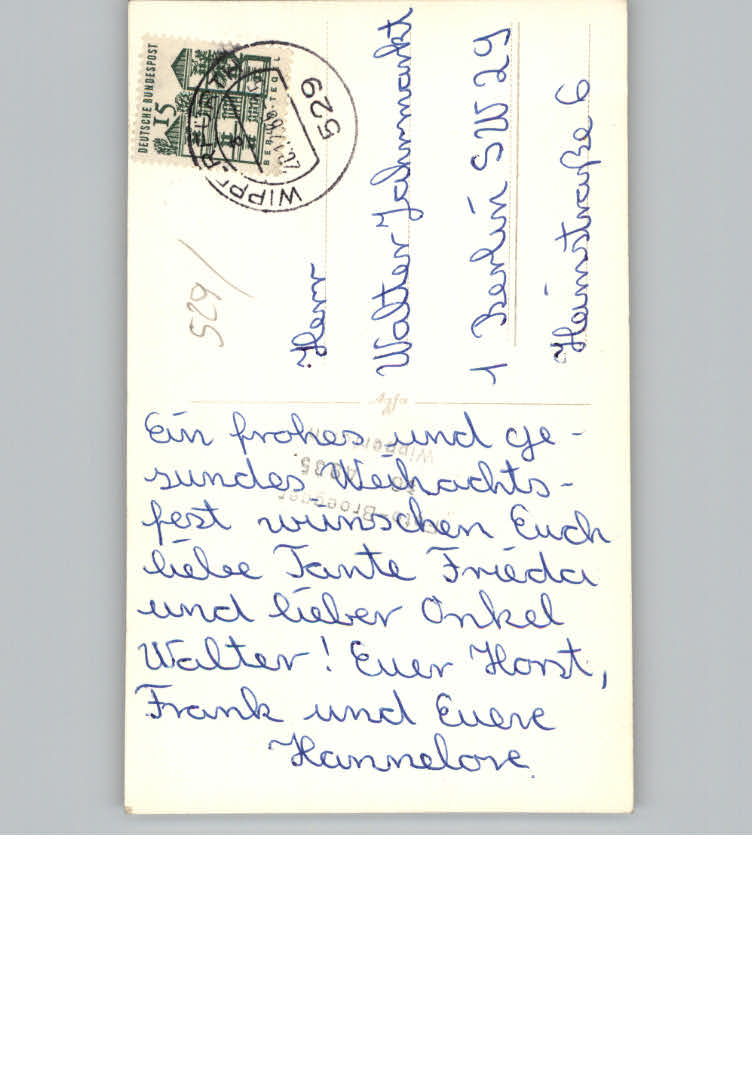 DEUTSCHE BUNDESPOST
15
BERLIN-TEGEL
529
529/
Herr
Walter Jahrmarkt
1 Berlin SW 29
Heimstraße 6
Ein frohes und ge-
sundes Weihachts-
fest wünschen Euch
liebe Tante Frieda
und lieber Onkel
Walter! Euer Horst,
Frank und Euere
Hannelore.